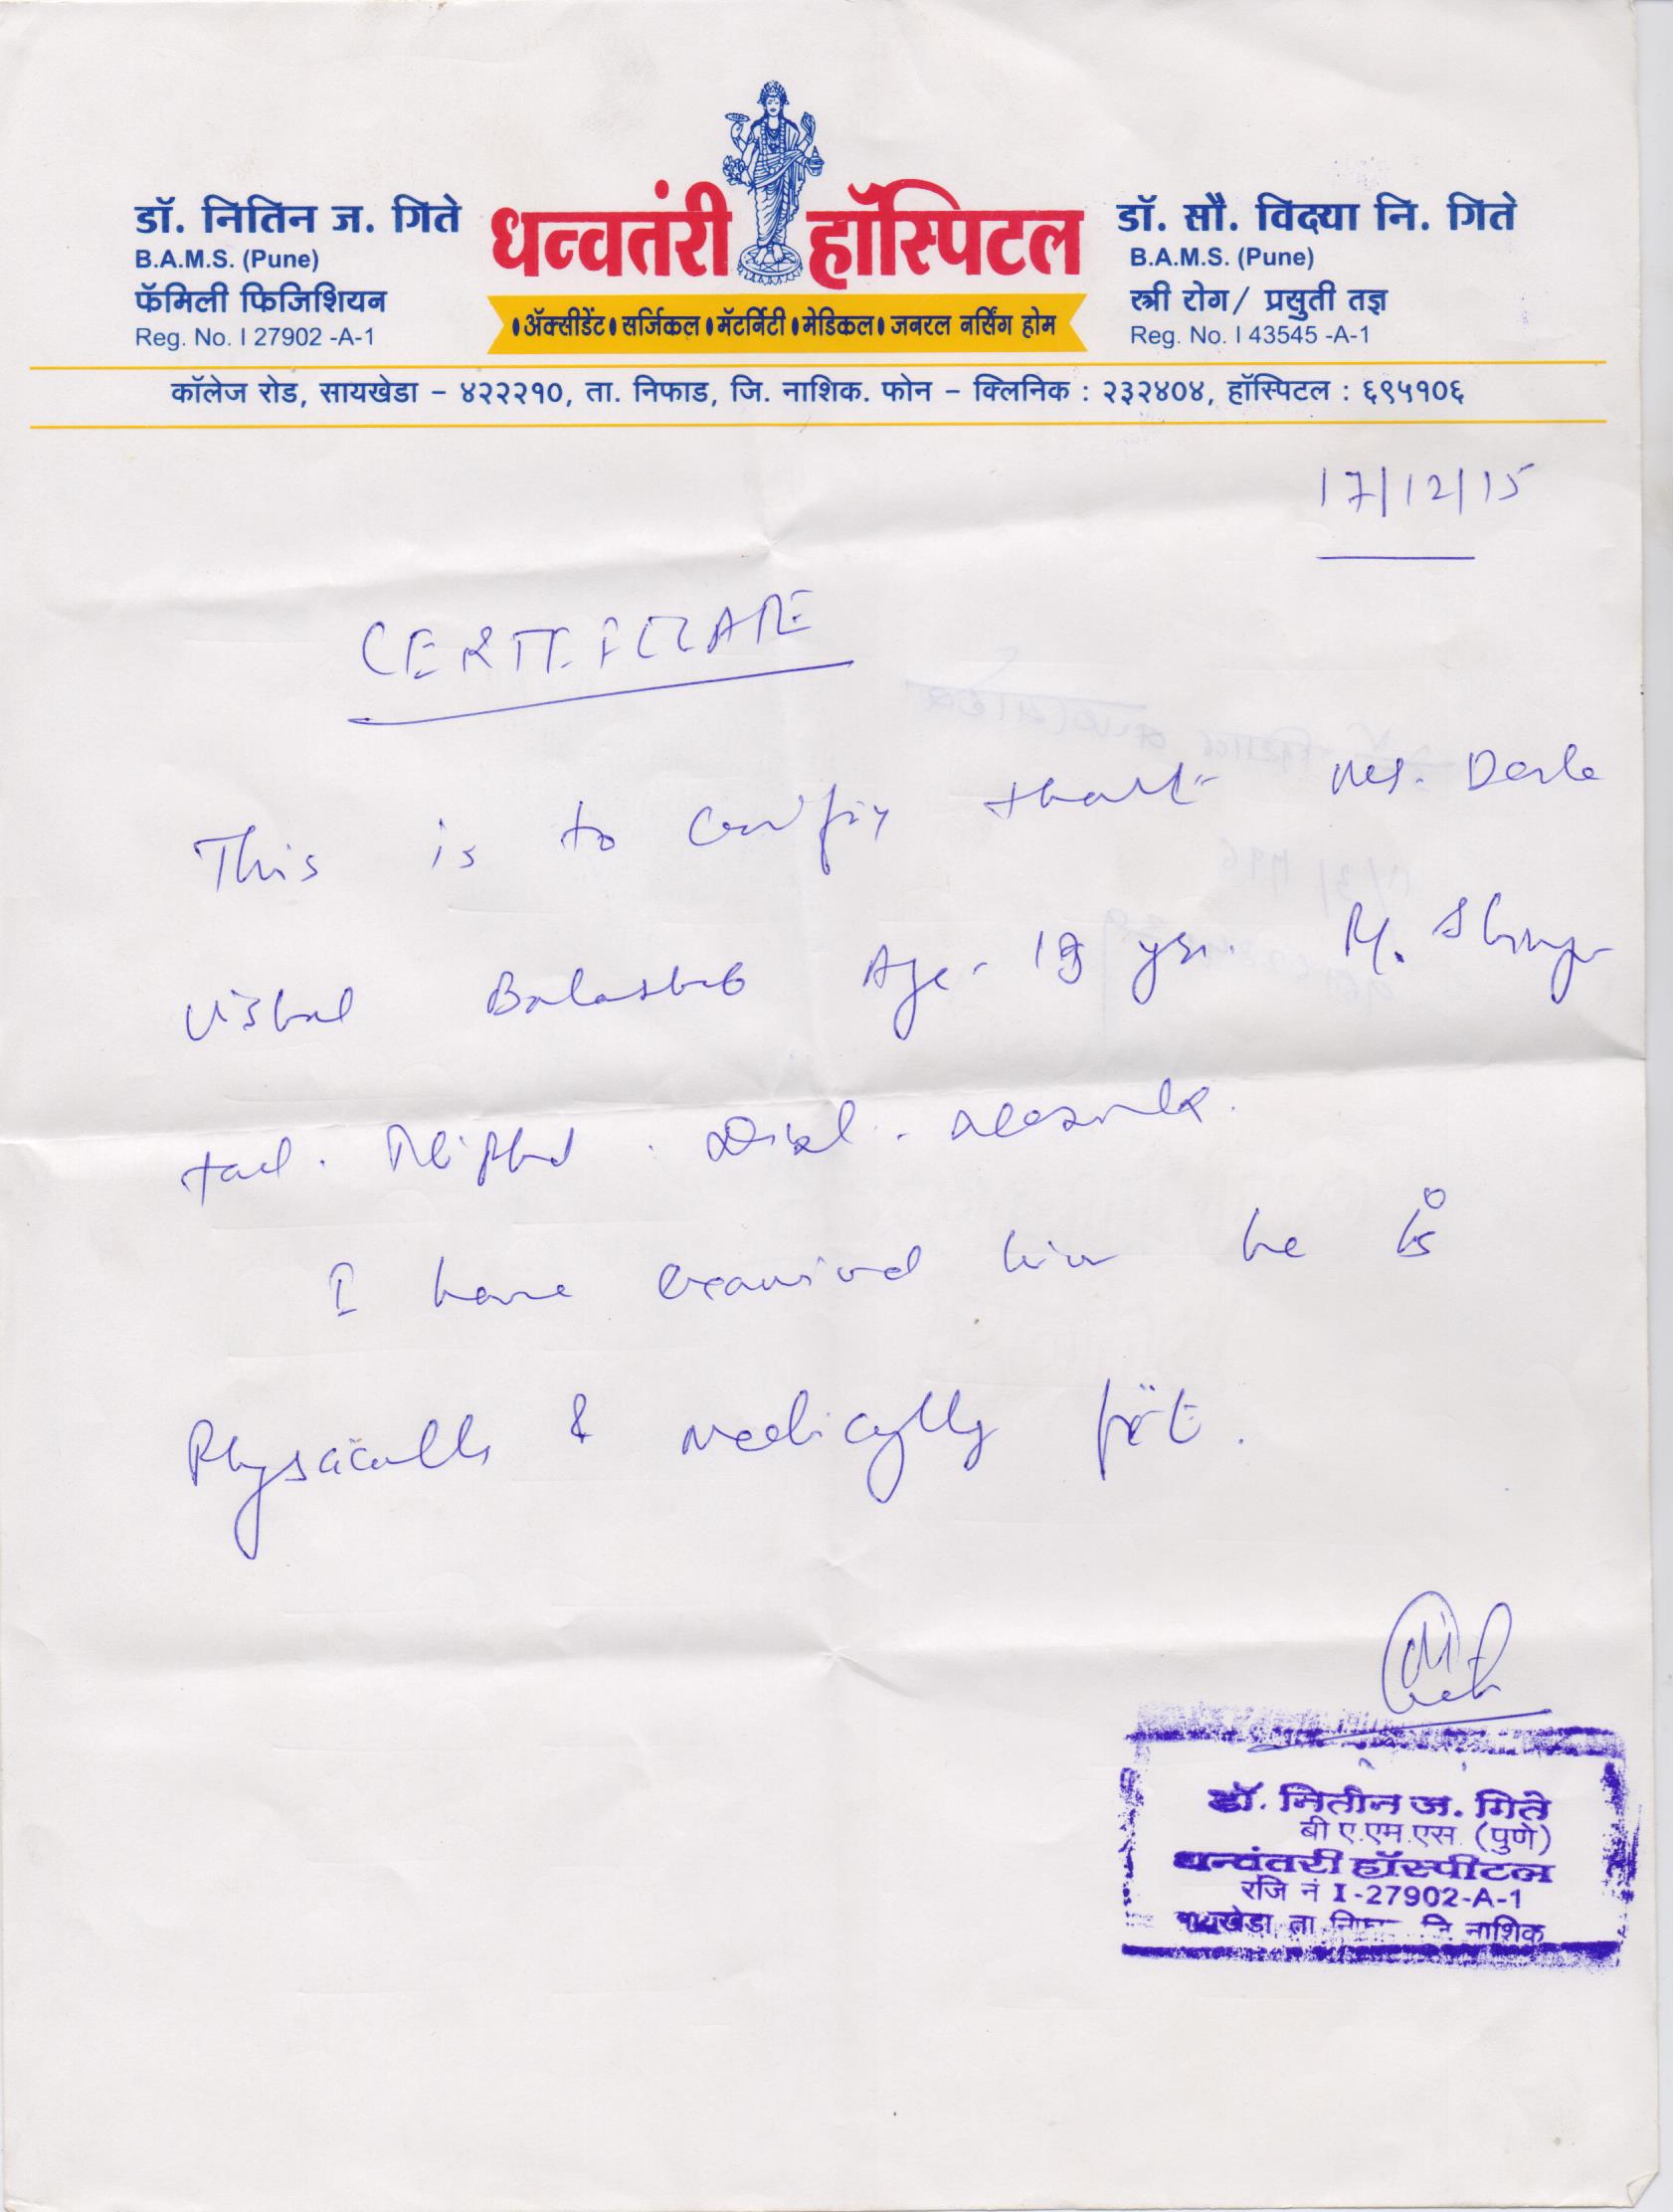 डॉ. नितिन ज. गिते
B.A.M.S. (Pune)
फॅमिली फिजिशियन
Reg. No. I 27902 -A-1
धन्वतंरी हॉस्पिटल
• ॲक्सीडेंट • सर्जिकल • मॅटर्निटी • मेडिकल • जनरल नर्सिंग होम
डॉ. सौ. विद्या नि. गिते
B.A.M.S. (Pune)
स्त्री रोग / प्रसुती तज्ञ
Reg. No. I 43545 -A-1
कॉलेज रोड, सायखेडा – ४२२२१०, ता. निफाड, जि. नाशिक. फोन – क्लिनिक : २३२४०४, हॉस्पिटल : ६९५१०६
17/12/15
CERTIFICATE
This is to certify that
Vishal Balasaheb Age - yrs.
tal. Niphad. Dist.
I have examined him he is
Physically & medically fit.
डॉ. नितीन ज. गिते
बी ए.एम.एस. (पुणे)
धन्वंतरी हॉस्पीटल
रजि नं I-27902-A-1
ता नाशिक